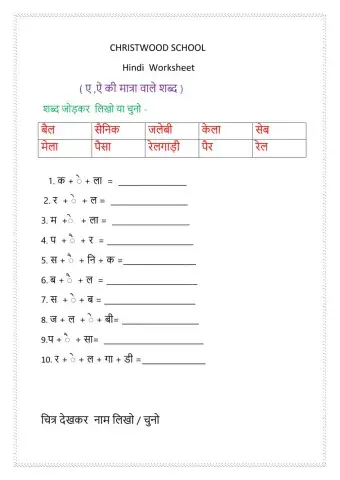 CHRISTWOOD SCHOOL
Hindi Worksheet
( ए ,ऐ की मात्रा वाले शब्द )
शब्द जोड़कर लिखो या चुनो -
बैल सैनिक जलेबी केला सेब
मेला पैसा रेलगाड़ी पैर रेल
1. क + े + ला = _______________
2. र + े + ल = _________________
3. म +े + ला = _________________
4. प + ै + र = ___________________
5. स + ै + नि + क =________________
6. ब + ै + ल = ____________________
7. स + े + ब = ____________________
8. ज + ल + े + बी= _________________
9.प + ै + सा= ______________________
10. र + े + ल + गा + डी =______________
चित्र देखकर नाम लिखो / चुनो